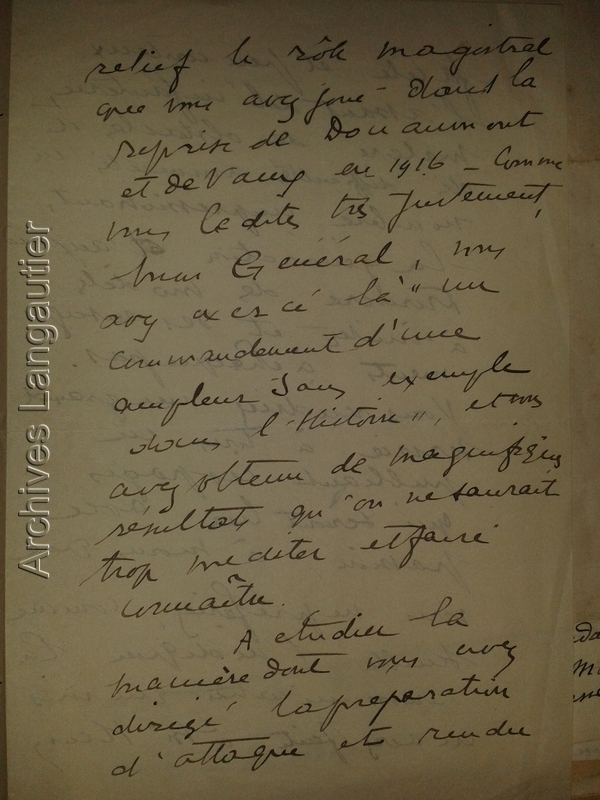 relief le rôle magistral
que vous avez joué dans la
reprise de Douaumont
et de Vaux en 1916 – Comme
vous le dites très justement,
mon Général, vous
avez exercé là " un
commandement d'une
ampleur sans exemple
dans l'Histoire ", et vous
avez obtenu de magnifiques
résultats qu'on ne saurait
trop méditer et faire
connaître.
A etudier la
manière dont vous avez
dirigé la préparation
d'attaque et rendu
Archives Langautier